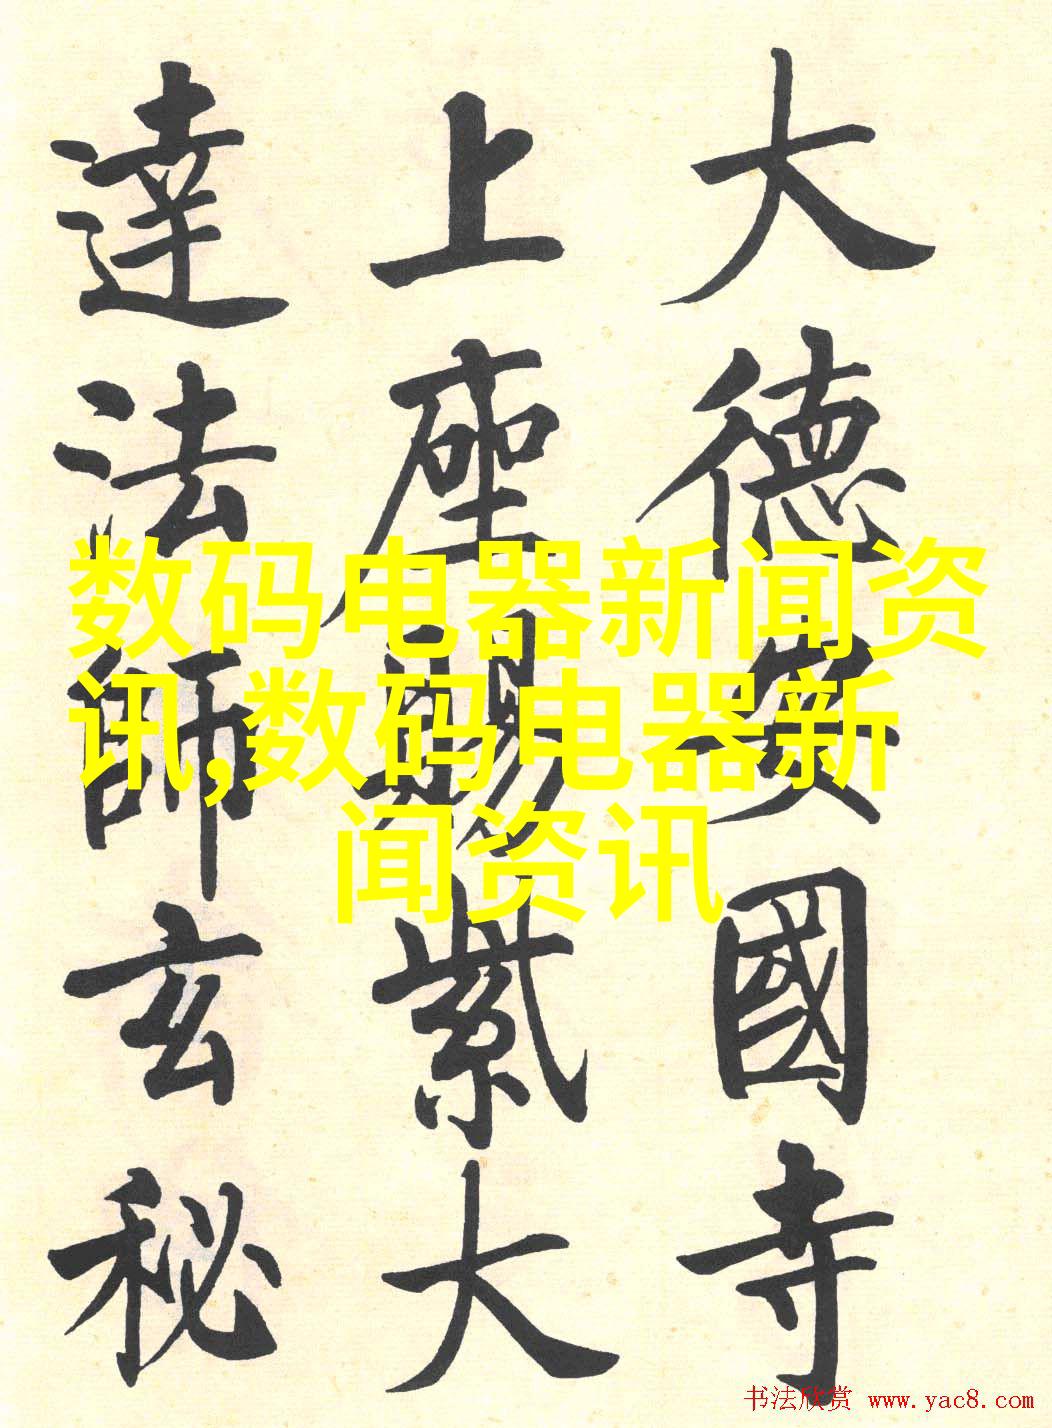 大德安國寺
上座賜紫大
達法師玄秘
数码电器新闻资
讯,数码电器新
闻资讯
书法欣赏 www.yac8.com